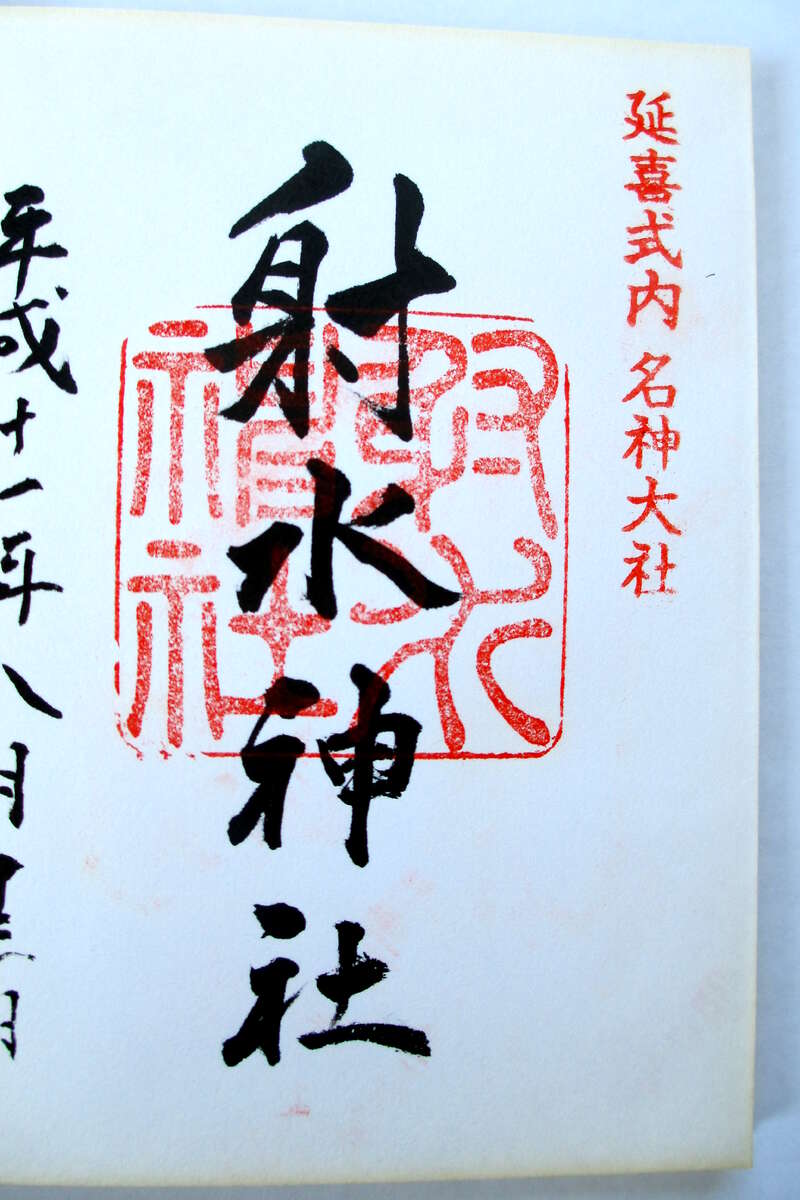 延喜式内 名神大社
射水神社
射水神社
平成十一年八月